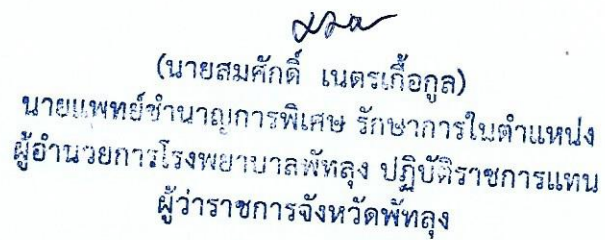 (นายสมศักดิ์ เนตรเกื้อกูล)
นายแพทย์ชำนาญการพิเศษ รักษาการในตำแหน่ง
ผู้อำนวยการโรงพยาบาลพัทลุง ปฏิบัติราชการแทน
ผู้ว่าราชการจังหวัดพัทลุง